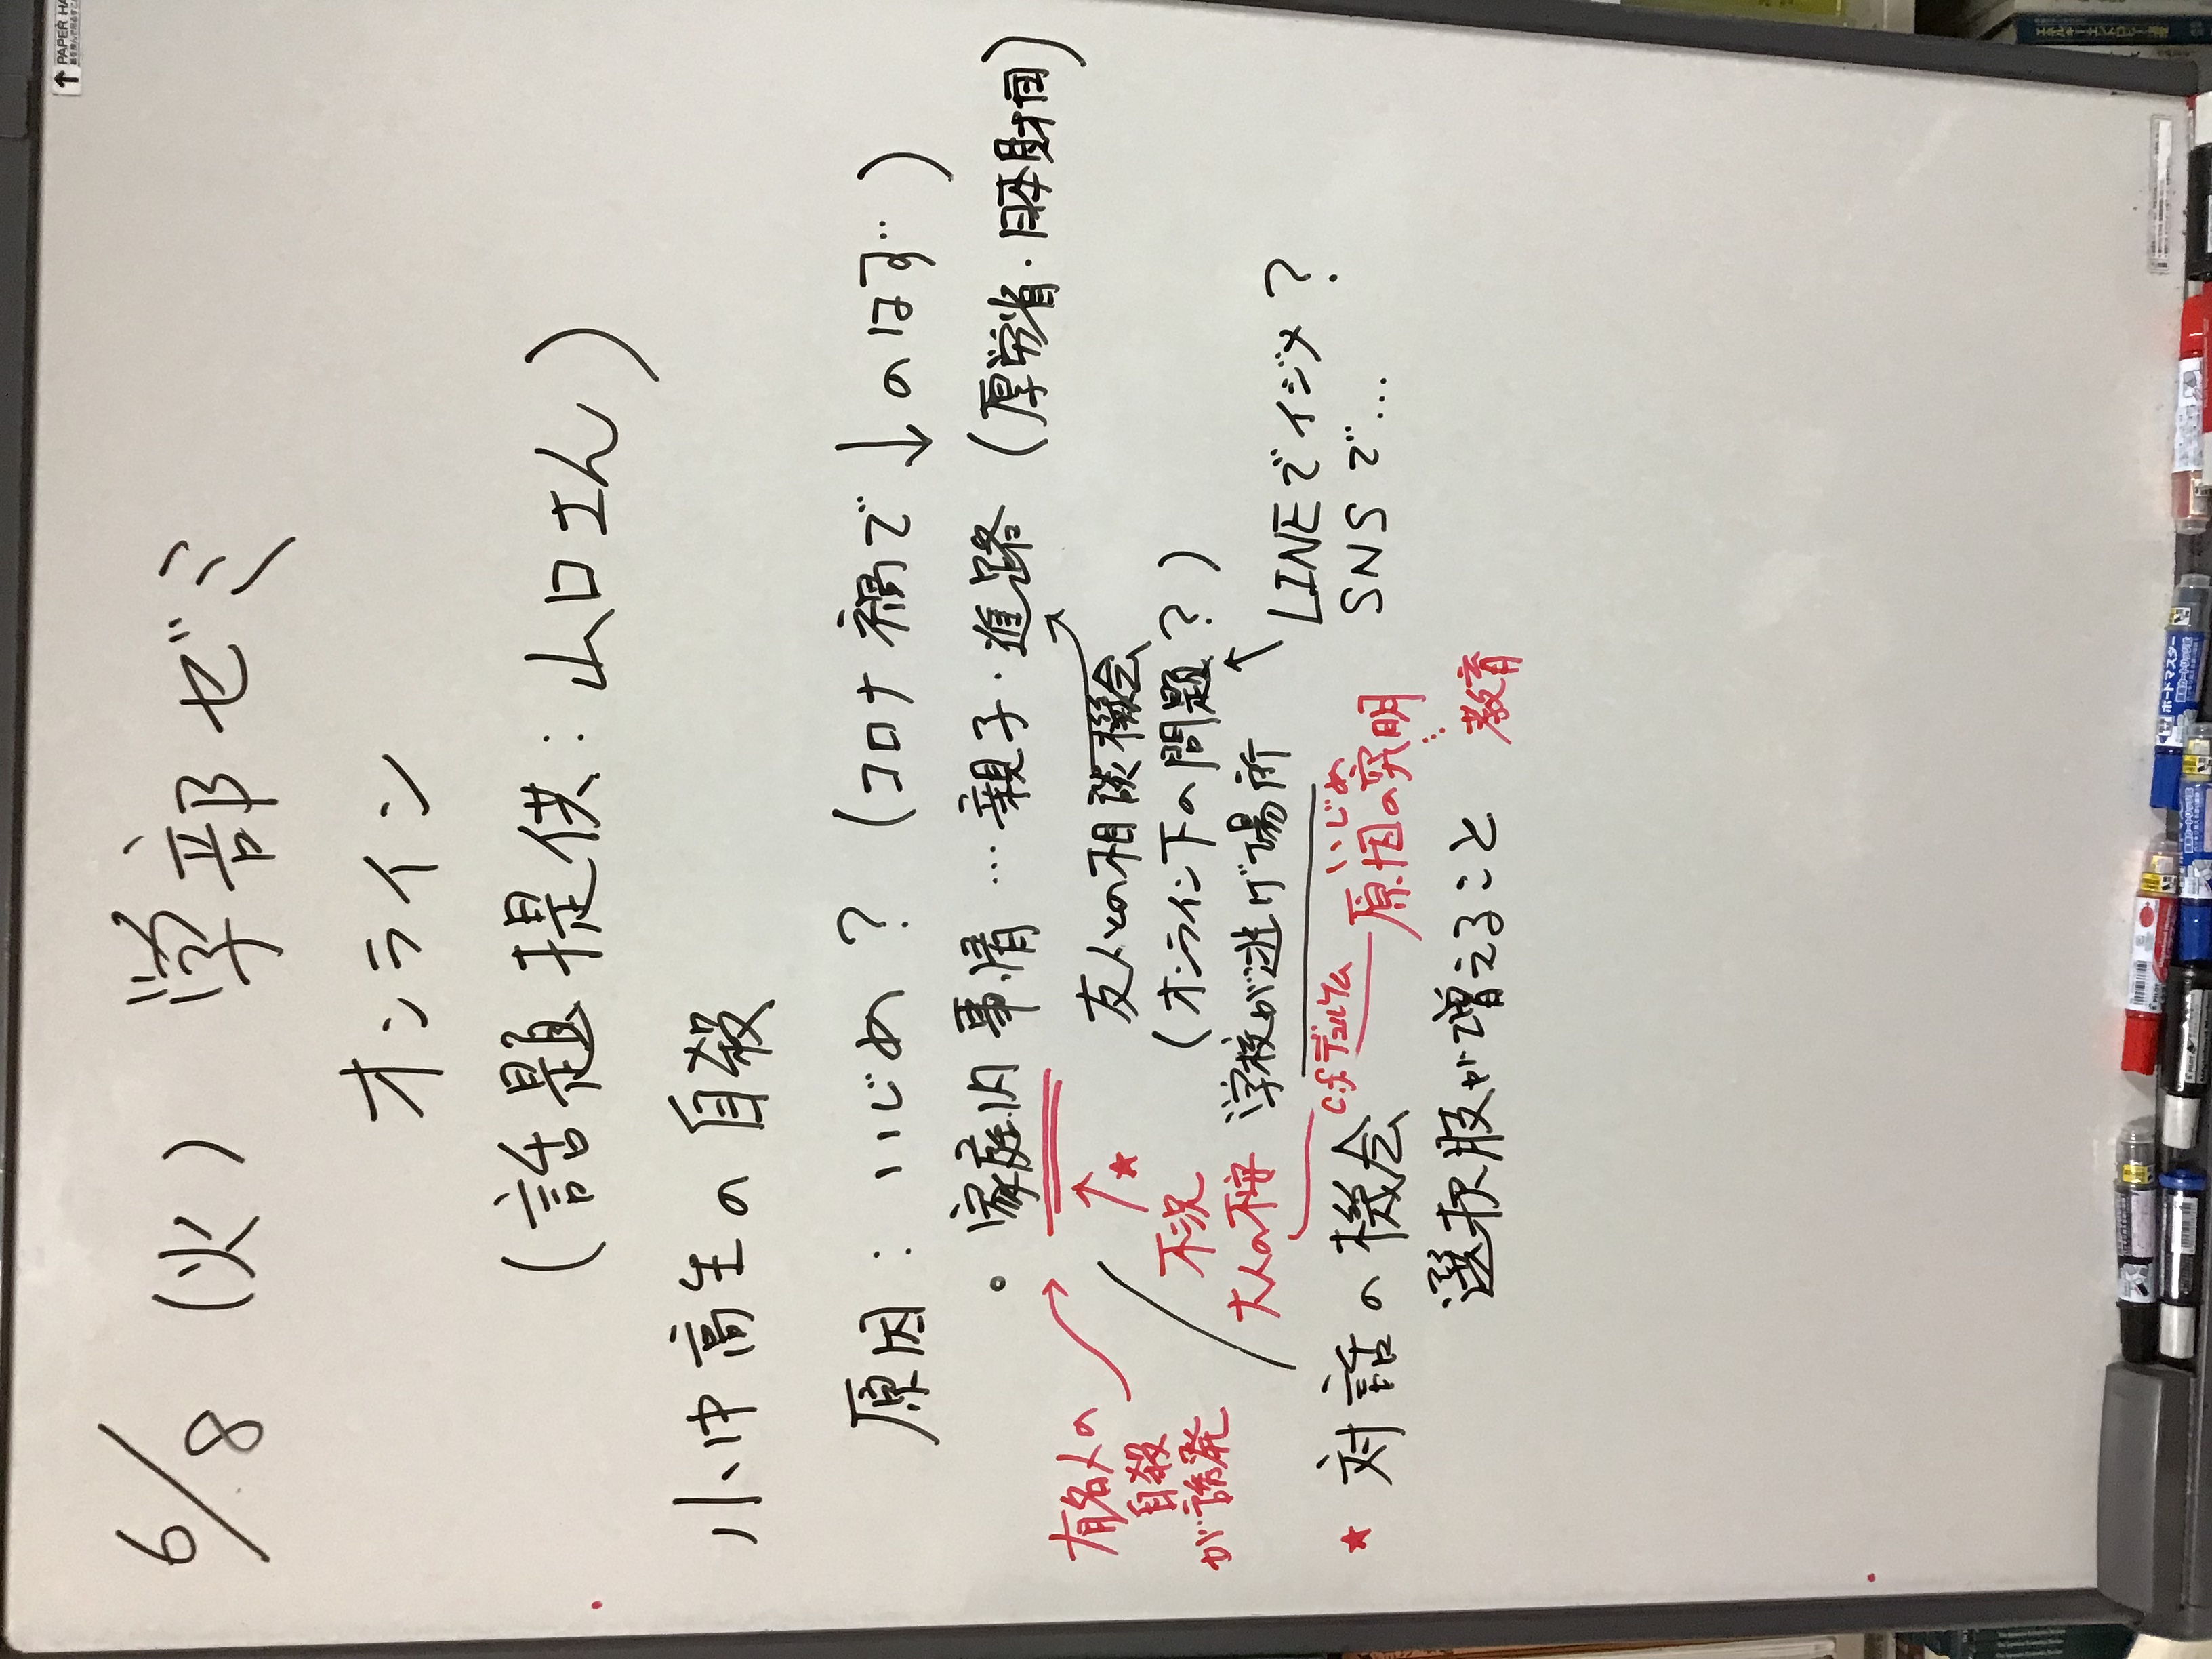 6/8 (火) 学部ゼミ
オンライン
(話題提供:山口さん)
小中高生の自殺
原因:いじめ? (コロナ禍で↓のはず‥)
・家庭内事情…親子・進路 (厚労省・日本財団)
友人との相談機会
(オンライン下の問題?)
学校が逃げ場所
↑ LINEでイジメ?
SNSで…
有名人の
自殺
が誘発
↑★
不況
大人の不安
c.f. デュルケム
いじめ
原因の究明
… 教育
★ 対話の機会
選択肢が増えること
↑ PAPER
ボードマスター